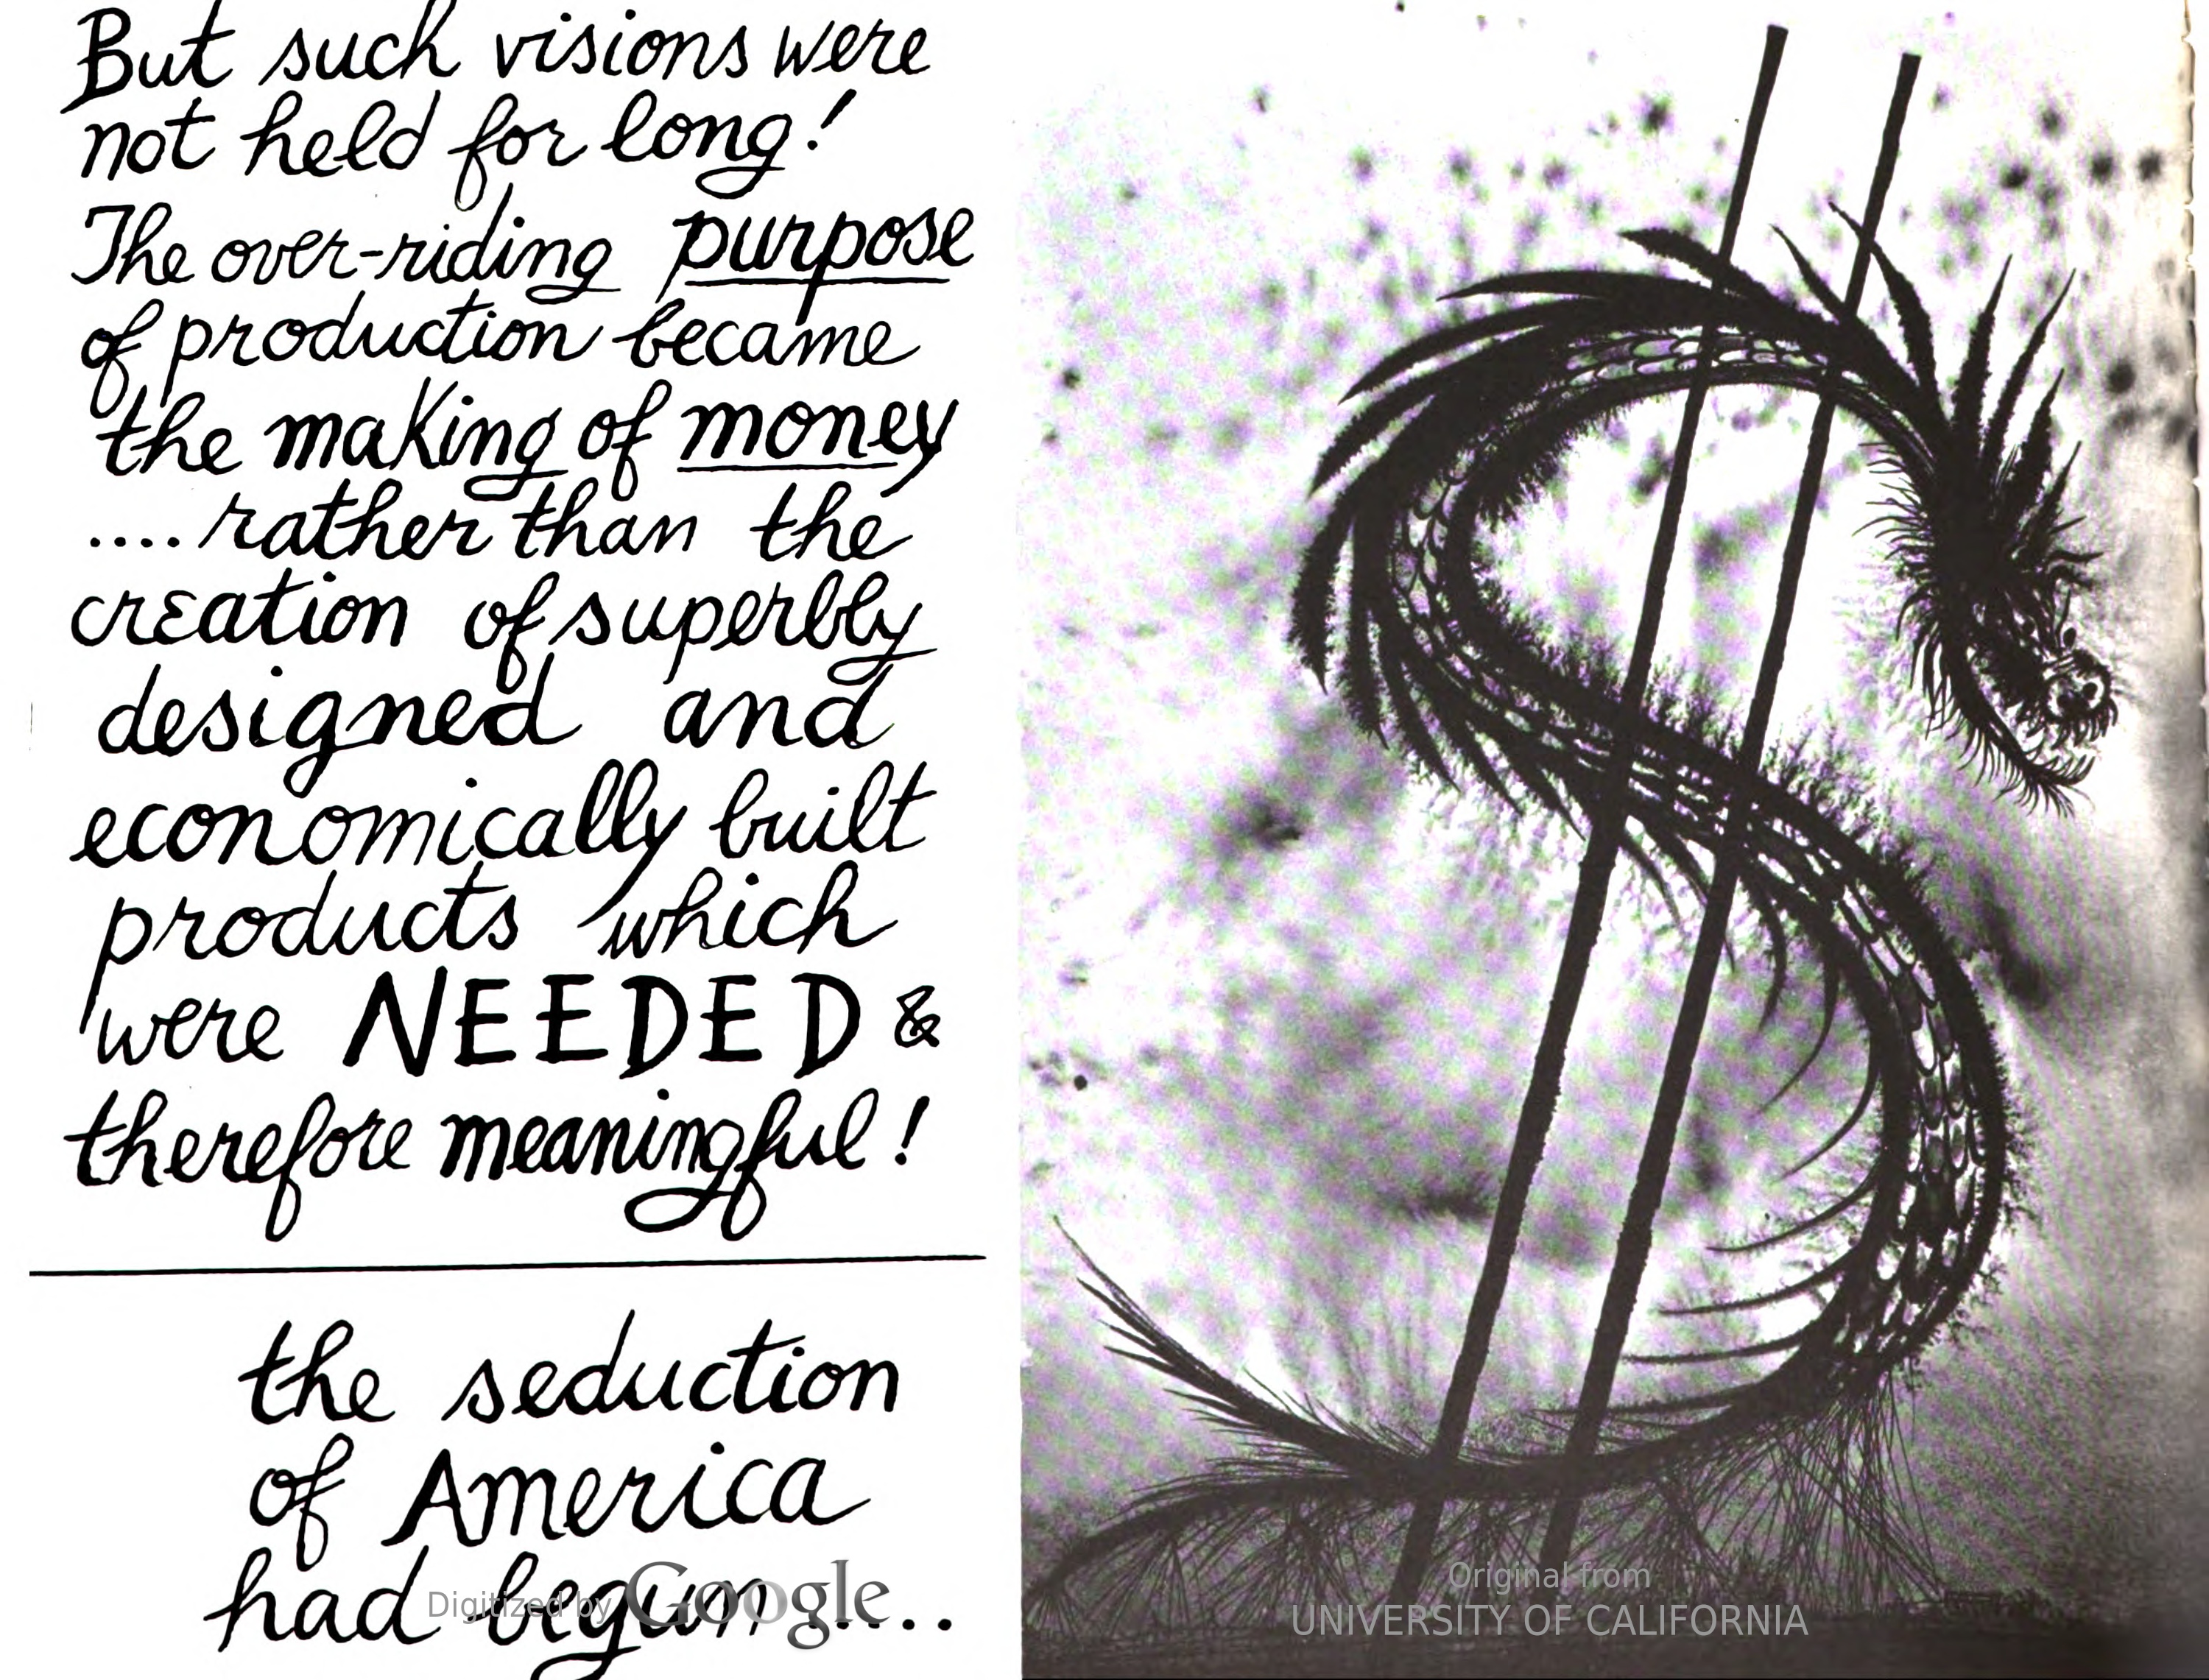 But such visions were
not held for long!
The over-riding purpose
of production became
the making of money
.... rather than the
creation of superbly
designed and
economically built
products which
were NEEDED &
therefore meaningful!
the seduction
of America
had begun....
Digitized by Google
Original from
UNIVERSITY OF CALIFORNIA